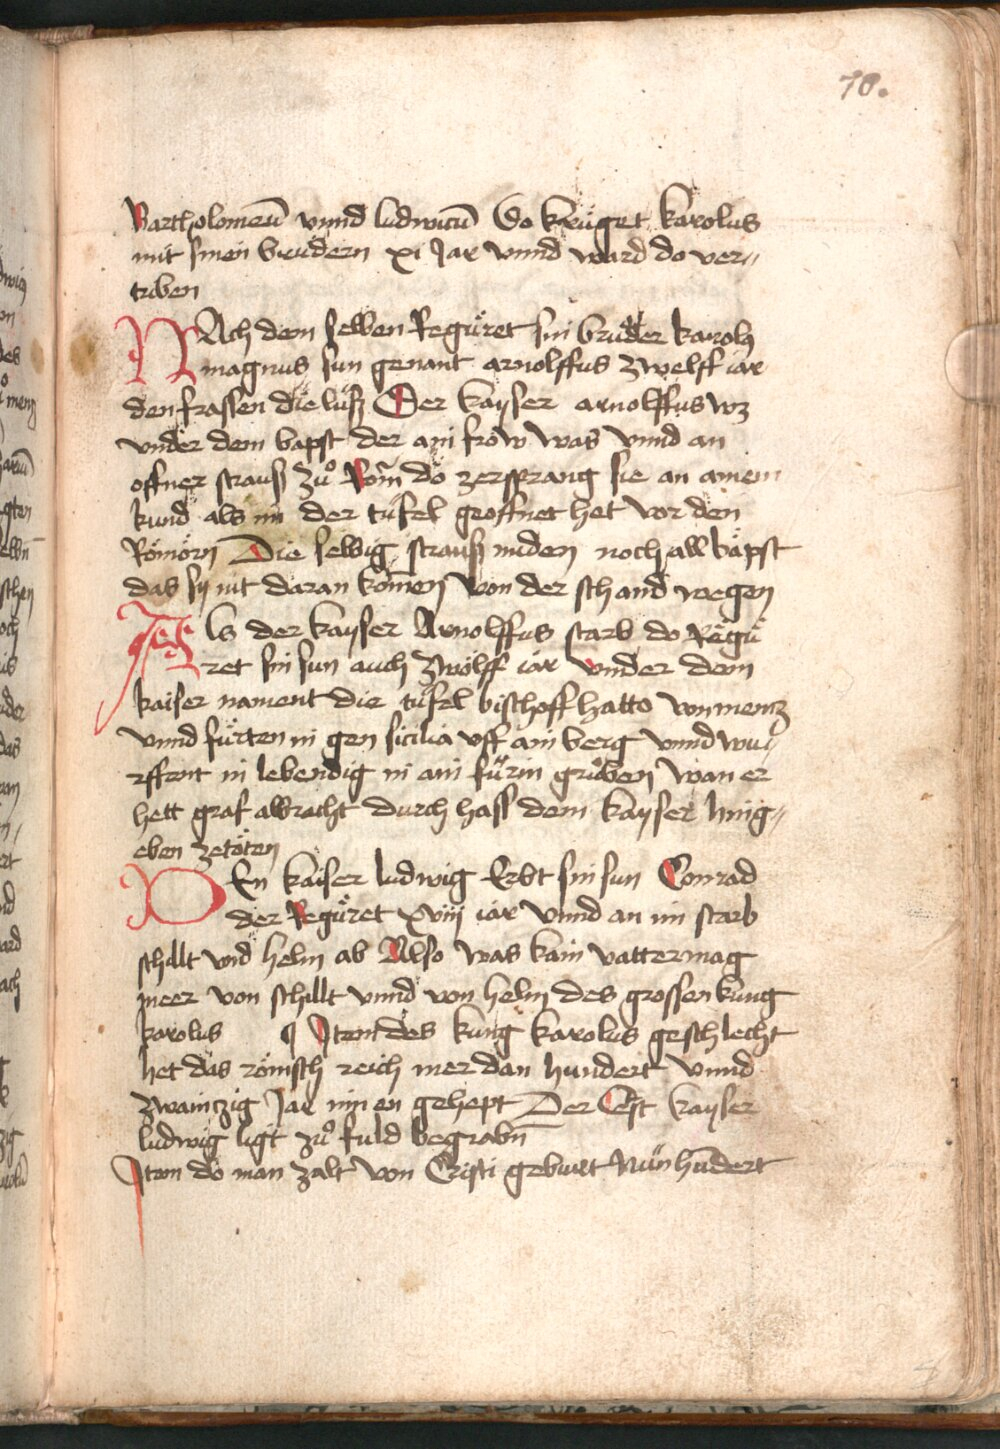 70.
Bartholomeū vnnd ludwicū Do krieget karolus
mit sinen brudern xi Jar vnnd ward do ver〃
triben
NAch dem selben Regüret sin bruder karoly
magnus sun genant arnolffus zwelff iar
den frassen die lüß Der kayser arnolffus wz
vnder dem bapst der ain frow was vnnd an
offner strauß zů Rom̄ do zersprang sie an ainem
kind als im der tüfel geoffnet het vor den
Römörn Die selbig strauß miden noch all bäpst
das sy nit daran komen von der schand wegen
Als der kayser Arnolffus starb do Regü
ret sin sun auch zwölff iar vnder dem
kaiser nament die tüfel bischoff hatto von mentz
vnnd fürten in gen sicilia vff ain berg vnnd wu〃
rffent in lebendig in ain fürin grůben wan er
hett graf albracht durch hass dem kayser hinig〃
eben zetöten
DEn kaiser ludwig Erbt sin sun Conrad
der Regüret xviij iar vnnd an im starb
schillt vnd helm ab Also was kain vattermag
meer von schillt vnnd von helm des grossen küng
karolus ¶ Item des küng karolus geschlecht
het das römsch reich mer dan hundert vnnd
zwaintzig Jar innen gehept Der Erst kayser
ludwig ligt zů fuld begrabn̄
Item do man zalt von Cristi geburt Nün hundert